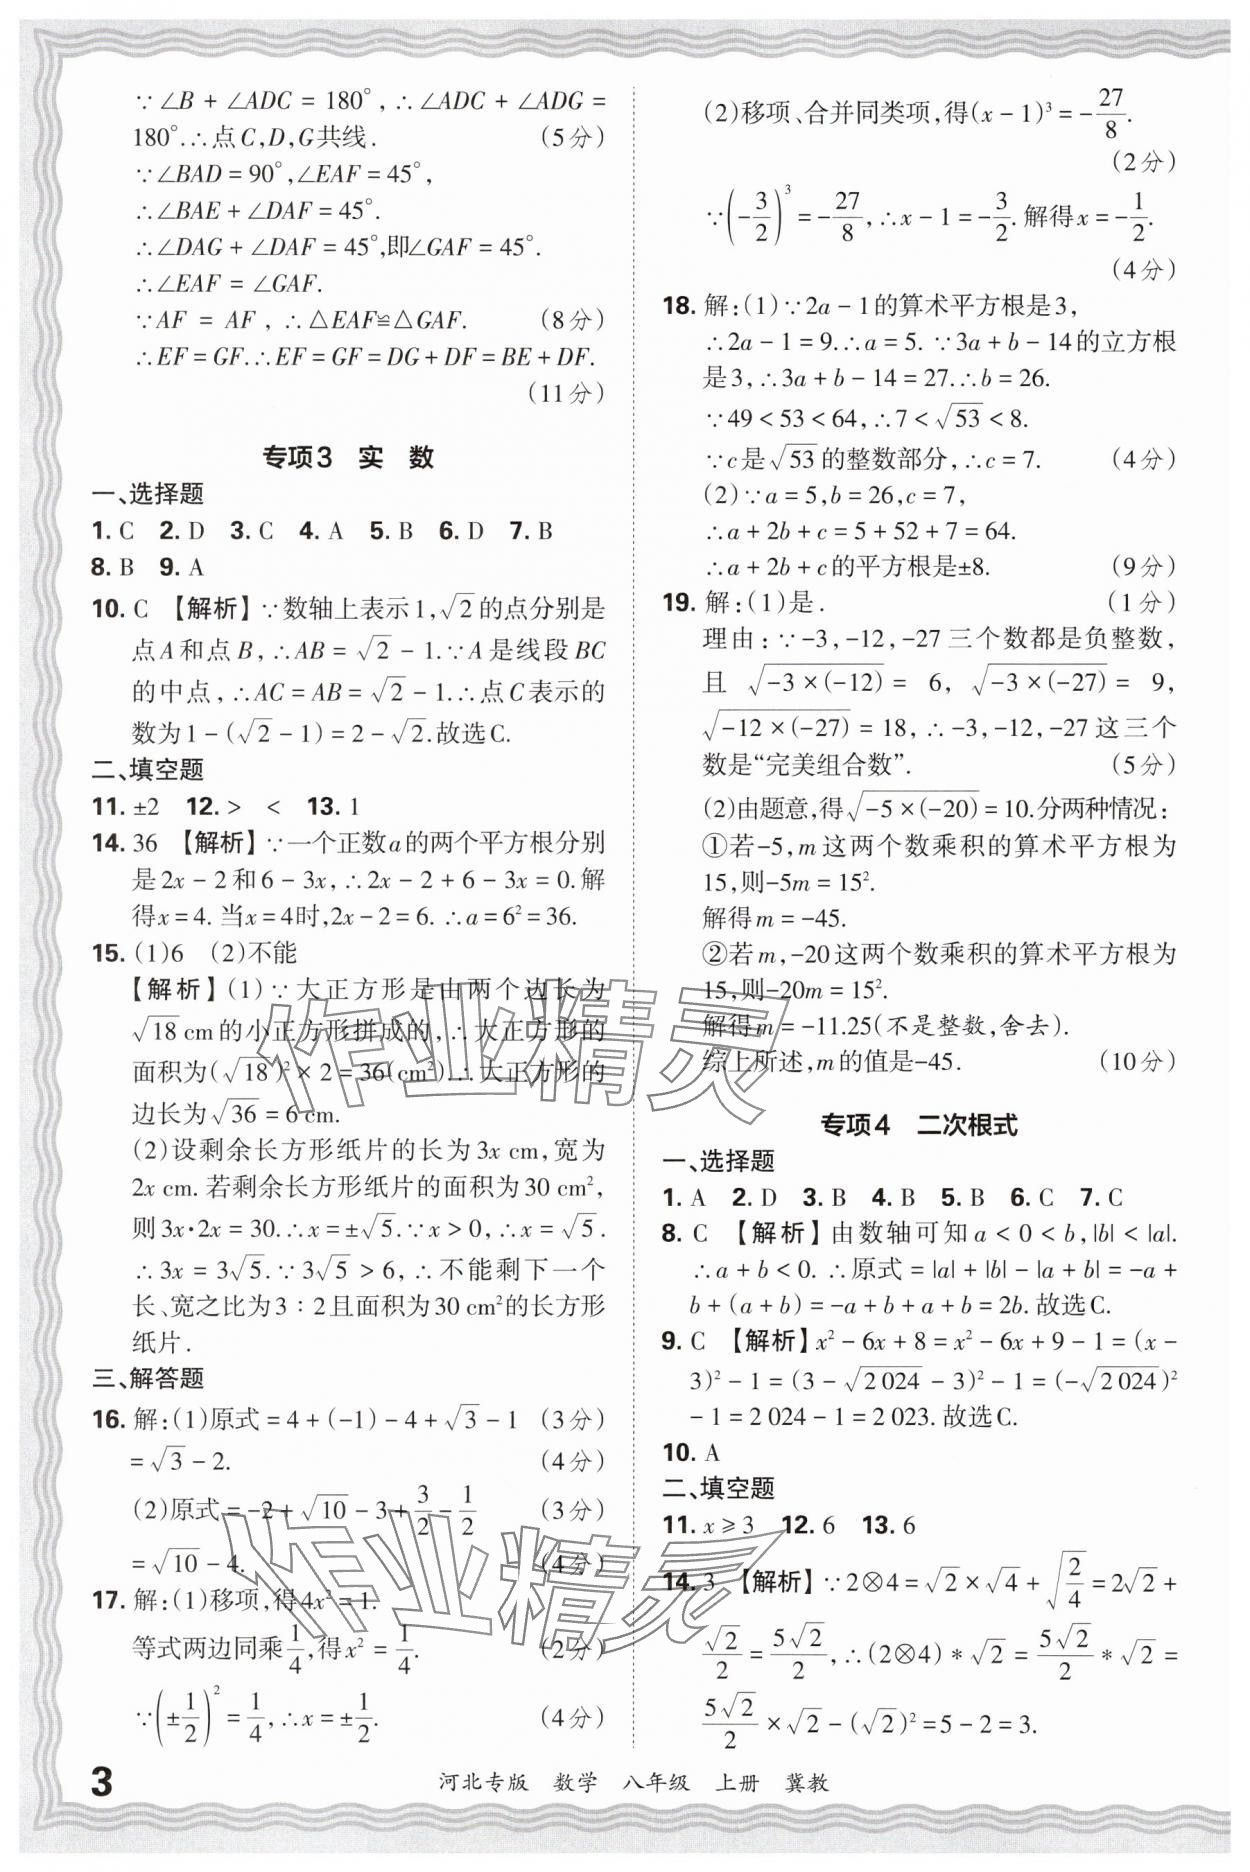 ∵∠B + ∠ADC = 180°, ∴∠ADC + ∠ADG =
180°.∴点C,D,G共线. (5分)
∵∠BAD = 90°,∠EAF = 45°,
∴∠BAE + ∠DAF = 45°.
∴∠DAG + ∠DAF = 45°,即∠GAF = 45°.
∴∠EAF = ∠GAF.
∵AF = AF, ∴△EAF≌△GAF. (8分)
∴EF = GF.∴EF = GF = DG + DF = BE + DF.
(11分)
专项3 实 数
一、选择题
1. C 2. D 3. C 4. A 5. B 6. D 7. B
8. B 9. A
10. C 【解析】∵数轴上表示1,√2的点分别是
点A和点B, ∴AB = √2 - 1.∵A是线段BC
的中点, ∴AC = AB = √2 - 1.∴点C表示的
数为1 - (√2 - 1) = 2 - √2.故选C.
二、填空题
11. ±2 12. > < 13. 1
14. 36 【解析】∵一个正数a的两个平方根分别
是2x - 2和6 - 3x, ∴2x - 2 + 6 - 3x = 0.解
得x = 4. 当x = 4时,2x - 2 = 6. ∴a = 6² = 36.
15. (1)6 (2)不能
【解析】(1)∵大正方形是由两个边长为
√18 cm的小正方形拼成的, ∴大正方形的
面积为(√18)² × 2 = 36(cm²).∴大正方形的
边长为√36 = 6 cm.
(2)设剩余长方形纸片的长为3x cm,宽为
2x cm. 若剩余长方形纸片的面积为30 cm²,
则3x·2x = 30.∴x = ±√5.∵x > 0, ∴x = √5.
∴3x = 3√5.∵3√5 > 6, ∴不能剩下一个
长、宽之比为3∶2且面积为30 cm²的长方形
纸片.
三、解答题
16. 解:(1)原式 = 4 + (-1) - 4 + √3 - 1 (3分)
= √3 - 2. (4分)
(2)原式 = -2 + √10 - 3 + 3/2 - 1/2 (3分)
= √10 - 4. (4分)
17. 解:(1)移项,得4x² = 1.
等式两边同乘1/4,得x² = 1/4. (2分)
∵(±1/2)² = 1/4, ∴x = ±1/2. (4分)
(2)移项、合并同类项,得(x - 1)³ = -27/8.
(2分)
∵(-3/2)³ = -27/8, ∴x - 1 = -3/2. 解得x = -1/2.
(4分)
18. 解:(1)∵2a - 1的算术平方根是3,
∴2a - 1 = 9.∴a = 5. ∵3a + b - 14的立方根
是3, ∴3a + b - 14 = 27.∴b = 26.
∵49 < 53 < 64, ∴7 < √53 < 8.
∵c是√53的整数部分, ∴c = 7. (4分)
(2)∵a = 5,b = 26,c = 7,
∴a + 2b + c = 5 + 52 + 7 = 64.
∴a + 2b + c的平方根是±8. (9分)
19. 解:(1)是. (1分)
理由:∵-3,-12,-27三个数都是负整数,
且 √(-3 × (-12)) = 6, √(-3 × (-27)) = 9,
√(-12 × (-27)) = 18, ∴-3,-12,-27这三个
数是“完美组合数”. (5分)
(2)由题意,得√(-5 × (-20)) = 10.分两种情况:
①若-5,m这两个数乘积的算术平方根为
15,则-5m = 15².
解得m = -45.
②若m,-20这两个数乘积的算术平方根为
15,则-20m = 15².
解得m = -11.25(不是整数,舍去).
综上所述,m的值是-45. (10分)
专项4 二次根式
一、选择题
1. A 2. D 3. B 4. B 5. B 6. C 7. C
8. C 【解析】由数轴可知a < 0 < b,|b| < |a|.
∴a + b < 0. ∴原式 = |a| + |b| - |a + b| = -a +
b + (a + b) = -a + b + a + b = 2b. 故选C.
9. C 【解析】x² - 6x + 8 = x² - 6x + 9 - 1 = (x -
3)² - 1 = (3 - √2 024 - 3)² - 1 = (-√2 024)²
- 1 = 2 024 - 1 = 2 023. 故选C.
10. A
二、填空题
11. x ≥ 3 12. 6 13. 6
14. 3 【解析】∵2⊗4 = √2 × √4 + √(2/4) = 2√2 +
√2/2 = 5√2/2, ∴(2⊗4) * √2 = 5√2/2 * √2 =
5√2/2 × √2 - (√2)² = 5 - 2 = 3.
3 河北专版 数学 八年级 上册 冀教
作业精灵
作业精灵